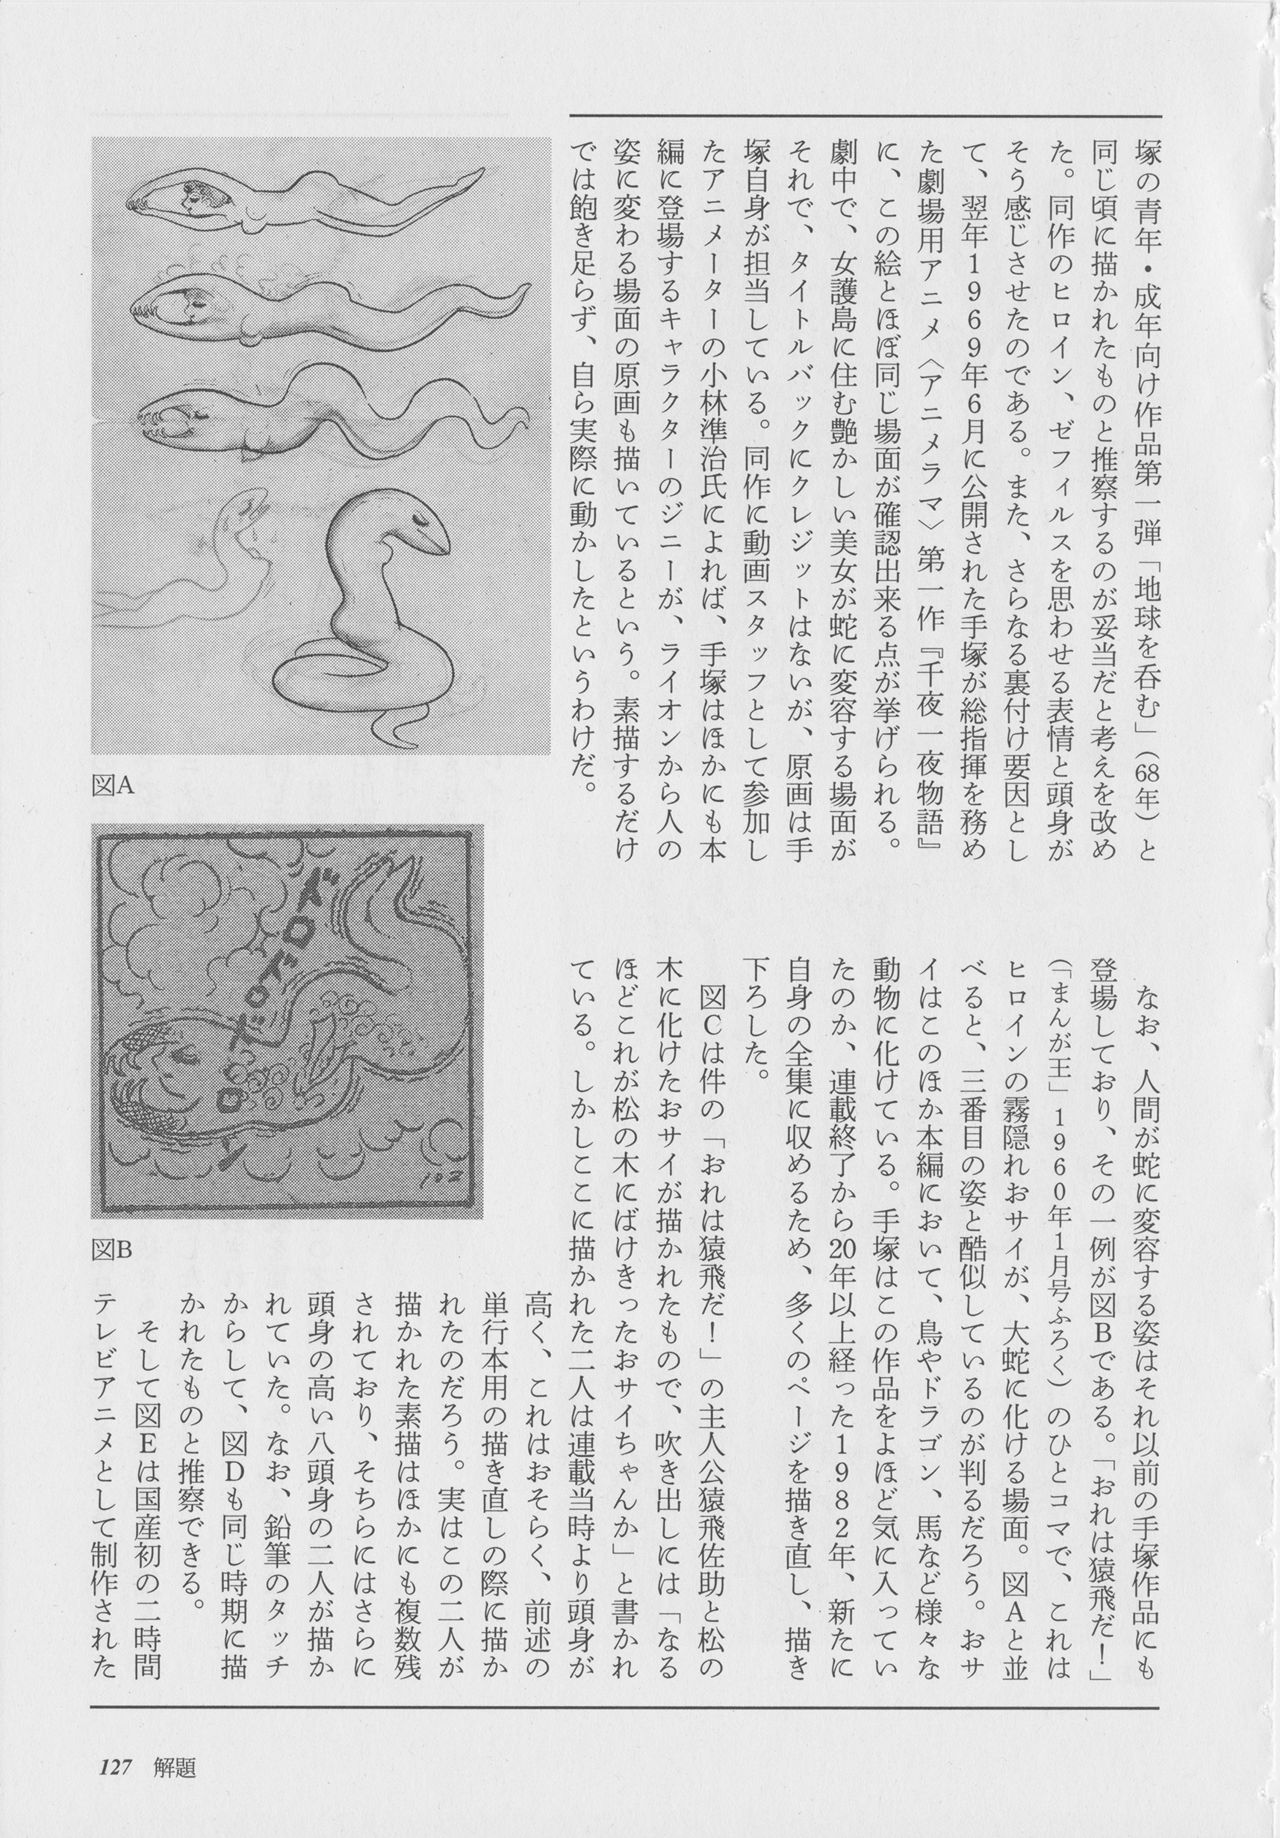 塚の青年・成年向け作品第一弾「地球を呑む」（68年）と
同じ頃に描かれたものと推察するのが妥当だと考えを改め
た。同作のヒロイン、ゼフィルスを思わせる表情と頭身が
そう感じさせたのである。また、さらなる裏付け要因とし
て、翌年1969年6月に公開された手塚が総指揮を務め
た劇場用アニメ〈アニメラマ〉第一作『千夜一夜物語』
に、この絵とほぼ同じ場面が確認出来る点が挙げられる。
劇中で、女護島に住む艶かしい美女が蛇に変容する場面が
それで、タイトルバックにクレジットはないが、原画は手
塚自身が担当している。同作に動画スタッフとして参加し
たアニメーターの小林準治氏によれば、手塚はほかにも本
編に登場するキャラクターのジニーが、ライオンから人の
姿に変わる場面の原画も描いているという。素描するだけ
では飽き足らず、自ら実際に動かしたというわけだ。
図A
ドロドロドロドロ〜ン
102
図B
なお、人間が蛇に変容する姿はそれ以前の手塚作品にも
登場しており、その一例が図Bである。「おれは猿飛だ！」
（「まんが王」1960年1月号ふろく）のひとコマで、これは
ヒロインの霧隠れおサイが、大蛇に化ける場面。図Aと並
べると、三番目の姿と酷似しているのが判るだろう。おサ
イはこのほか本編において、鳥やドラゴン、馬など様々な
動物に化けている。手塚はこの作品をよほど気に入ってい
たのか、連載終了から20年以上経った1982年、新たに
自身の全集に収めるため、多くのページを描き直し、描き
下ろした。
図Cは件の「おれは猿飛だ！」の主人公猿飛佐助と松の
木に化けたおサイが描かれたもので、吹き出しには「なる
ほどこれが松の木にばけきったおサイちゃんか」と書かれ
ている。しかしここに描かれた二人は連載当時より頭身が
高く、これはおそらく、前述の
単行本用の描き直しの際に描か
れたのだろう。実はこの二人が
描かれた素描はほかにも複数残
されており、そちらにはさらに
頭身の高い八頭身の二人が描か
れていた。なお、鉛筆のタッチ
からして、図Dも同じ時期に描
かれたものと推察できる。
そして図Eは国産初の二時間
テレビアニメとして制作された
127 解題